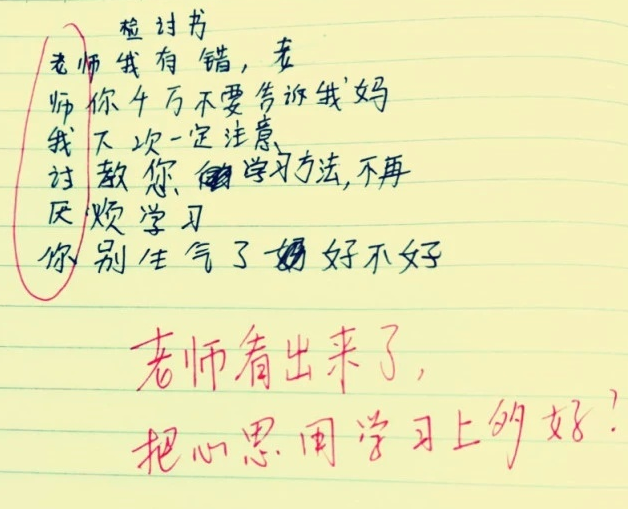 检讨书
老师我有错，老
师你千万不要告诉我妈
我下次一定注意、
讨教您学习方法，不再
厌烦学习
你别生气了好不好
老师看出来了，
把心思用学习上多好？